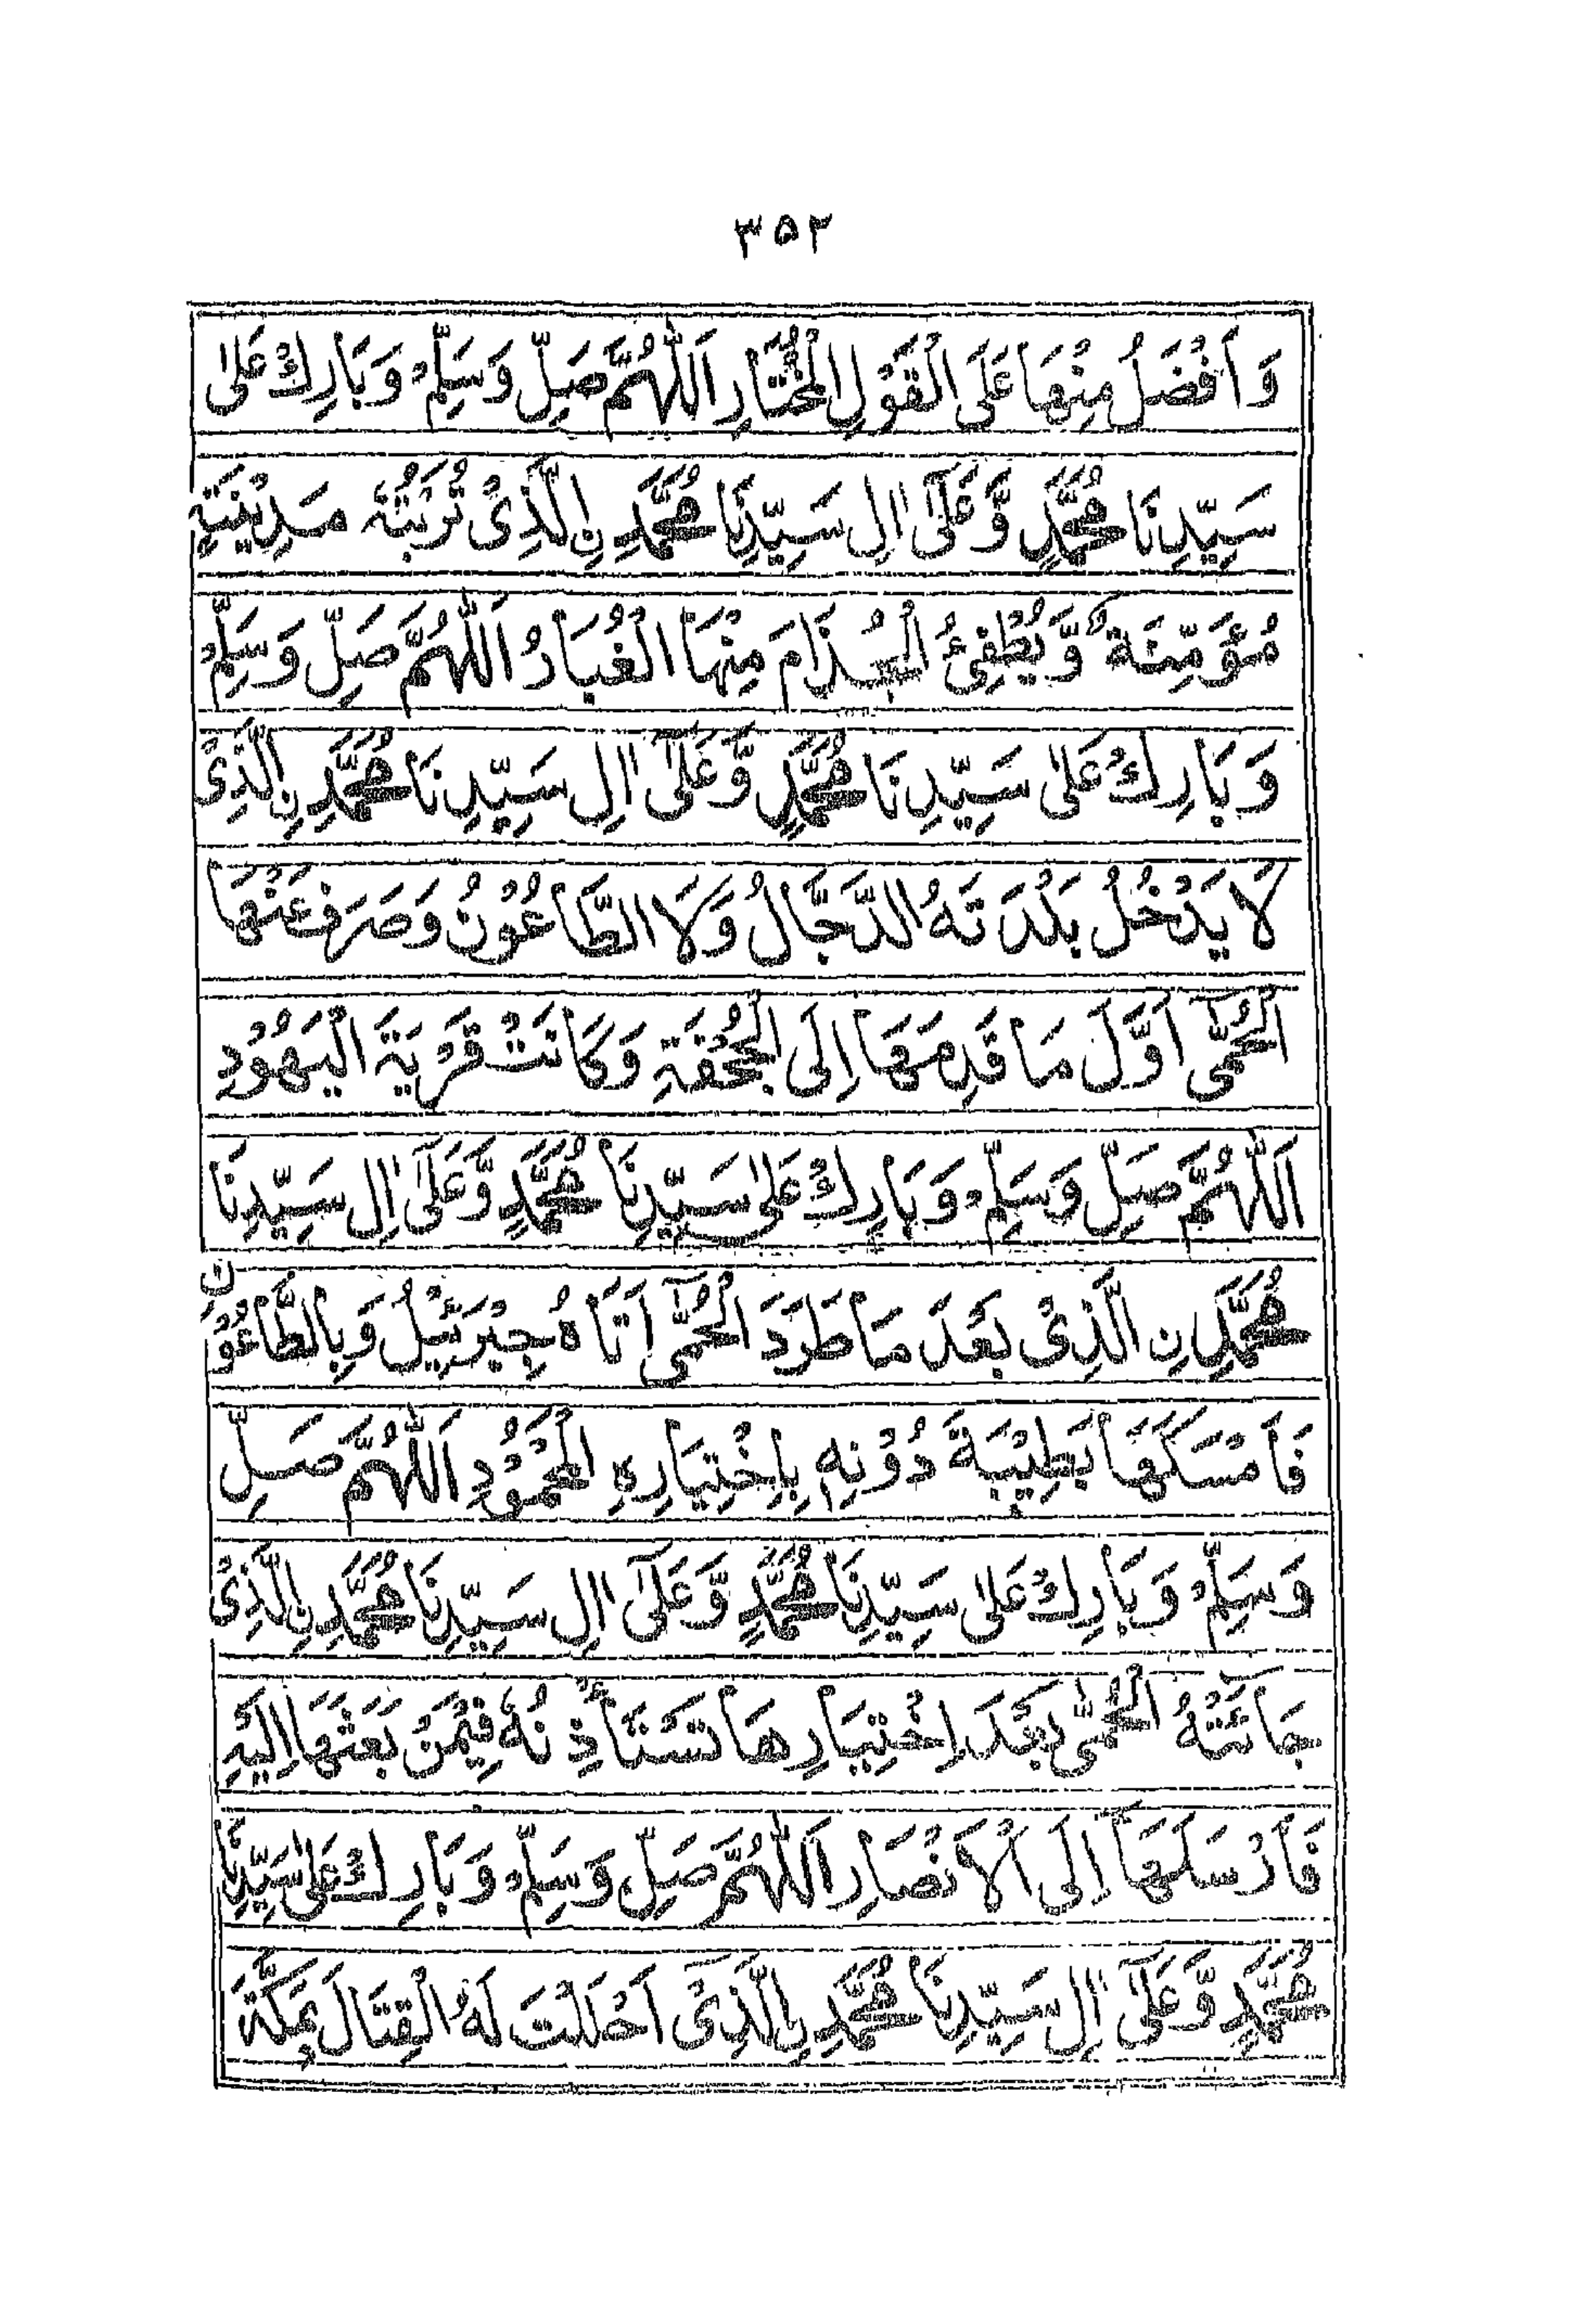 ۳۵۲
وَاَفْضَلُ مِنْهَا عَلَى الْقَوْلِ الْمُخْتَارِ اَللّٰهُمَّ صَلِّ وَسَلِّمْ وَبَارِكْ عَلٰى
سَيِّدِنَا مُحَمَّدٍ وَّعَلٰٓى اٰلِ سَيِّدِنَا مُحَمَّدِ نِ الَّذِىْ تُرْبَتُهٗ مَدِيْنَتِهٖ
مُؤَمِّنَةٌ وَّيُطْفِئُ الْجُذَامَ مِنْهَا الْغُبَارُ اَللّٰهُمَّ صَلِّ وَسَلِّمْ
وَبَارِكْ عَلٰى سَيِّدِنَا مُحَمَّدٍ وَّعَلٰٓى اٰلِ سَيِّدِنَا مُحَمَّدِ نِ الَّذِىْ
لَا يَدْخُلُ بَلْدَتَهُ الدَّجَّالُ وَلَا الطَّاعُوْنُ وَصَرَفَ عَنْهَا
الْحُمّٰٓى اَوَّلَ مَا قَدِمَهَا اِلَى الْجُحْفَةِ وَكَانَتْ قَرْيَةَ الْيَهُوْدِ
اَللّٰهُمَّ صَلِّ وَسَلِّمْ وَبَارِكْ عَلٰى سَيِّدِنَا مُحَمَّدٍ وَّعَلٰٓى اٰلِ سَيِّدِنَا
مُحَمَّدِ نِ الَّذِىْ بَعْدَ مَا طَرَدَ الْحُمّٰٓى اَتَاهُ جِبْرَئِيْلُ وَبِالطَّاعُوْنِ
فَاَمْسَكَهَا بَطِيْبَةَ دُوْنِهٖ بِاِخْتِيَارِهِ الْمَحْمُوْدِ اَللّٰهُمَّ صَلِّ
وَسَلِّمْ وَبَارِكْ عَلٰى سَيِّدِنَا مُحَمَّدٍ وَّعَلٰٓى اٰلِ سَيِّدِنَا مُحَمَّدِ نِ الَّذِىْ
جَائَتْهُ الْحُمّٰى بَعْدَ اِخْتِيَارِهَا تَسْتَأْذِنُهٗ فِيْمَنْ بَعَثَهَا اِلَيْهِ
فَاَرْسَلَهَا اِلَى الْاَنْصَارِ اَللّٰهُمَّ صَلِّ وَسَلِّمْ وَبَارِكْ عَلٰى سَيِّدِنَا
مُحَمَّدٍ وَّعَلٰٓى اٰلِ سَيِّدِنَا مُحَمَّدِ نِ الَّذِىْٓ اَحْلَلْتَ لَهُ الْقِتَالَ بِمَكَّةَ